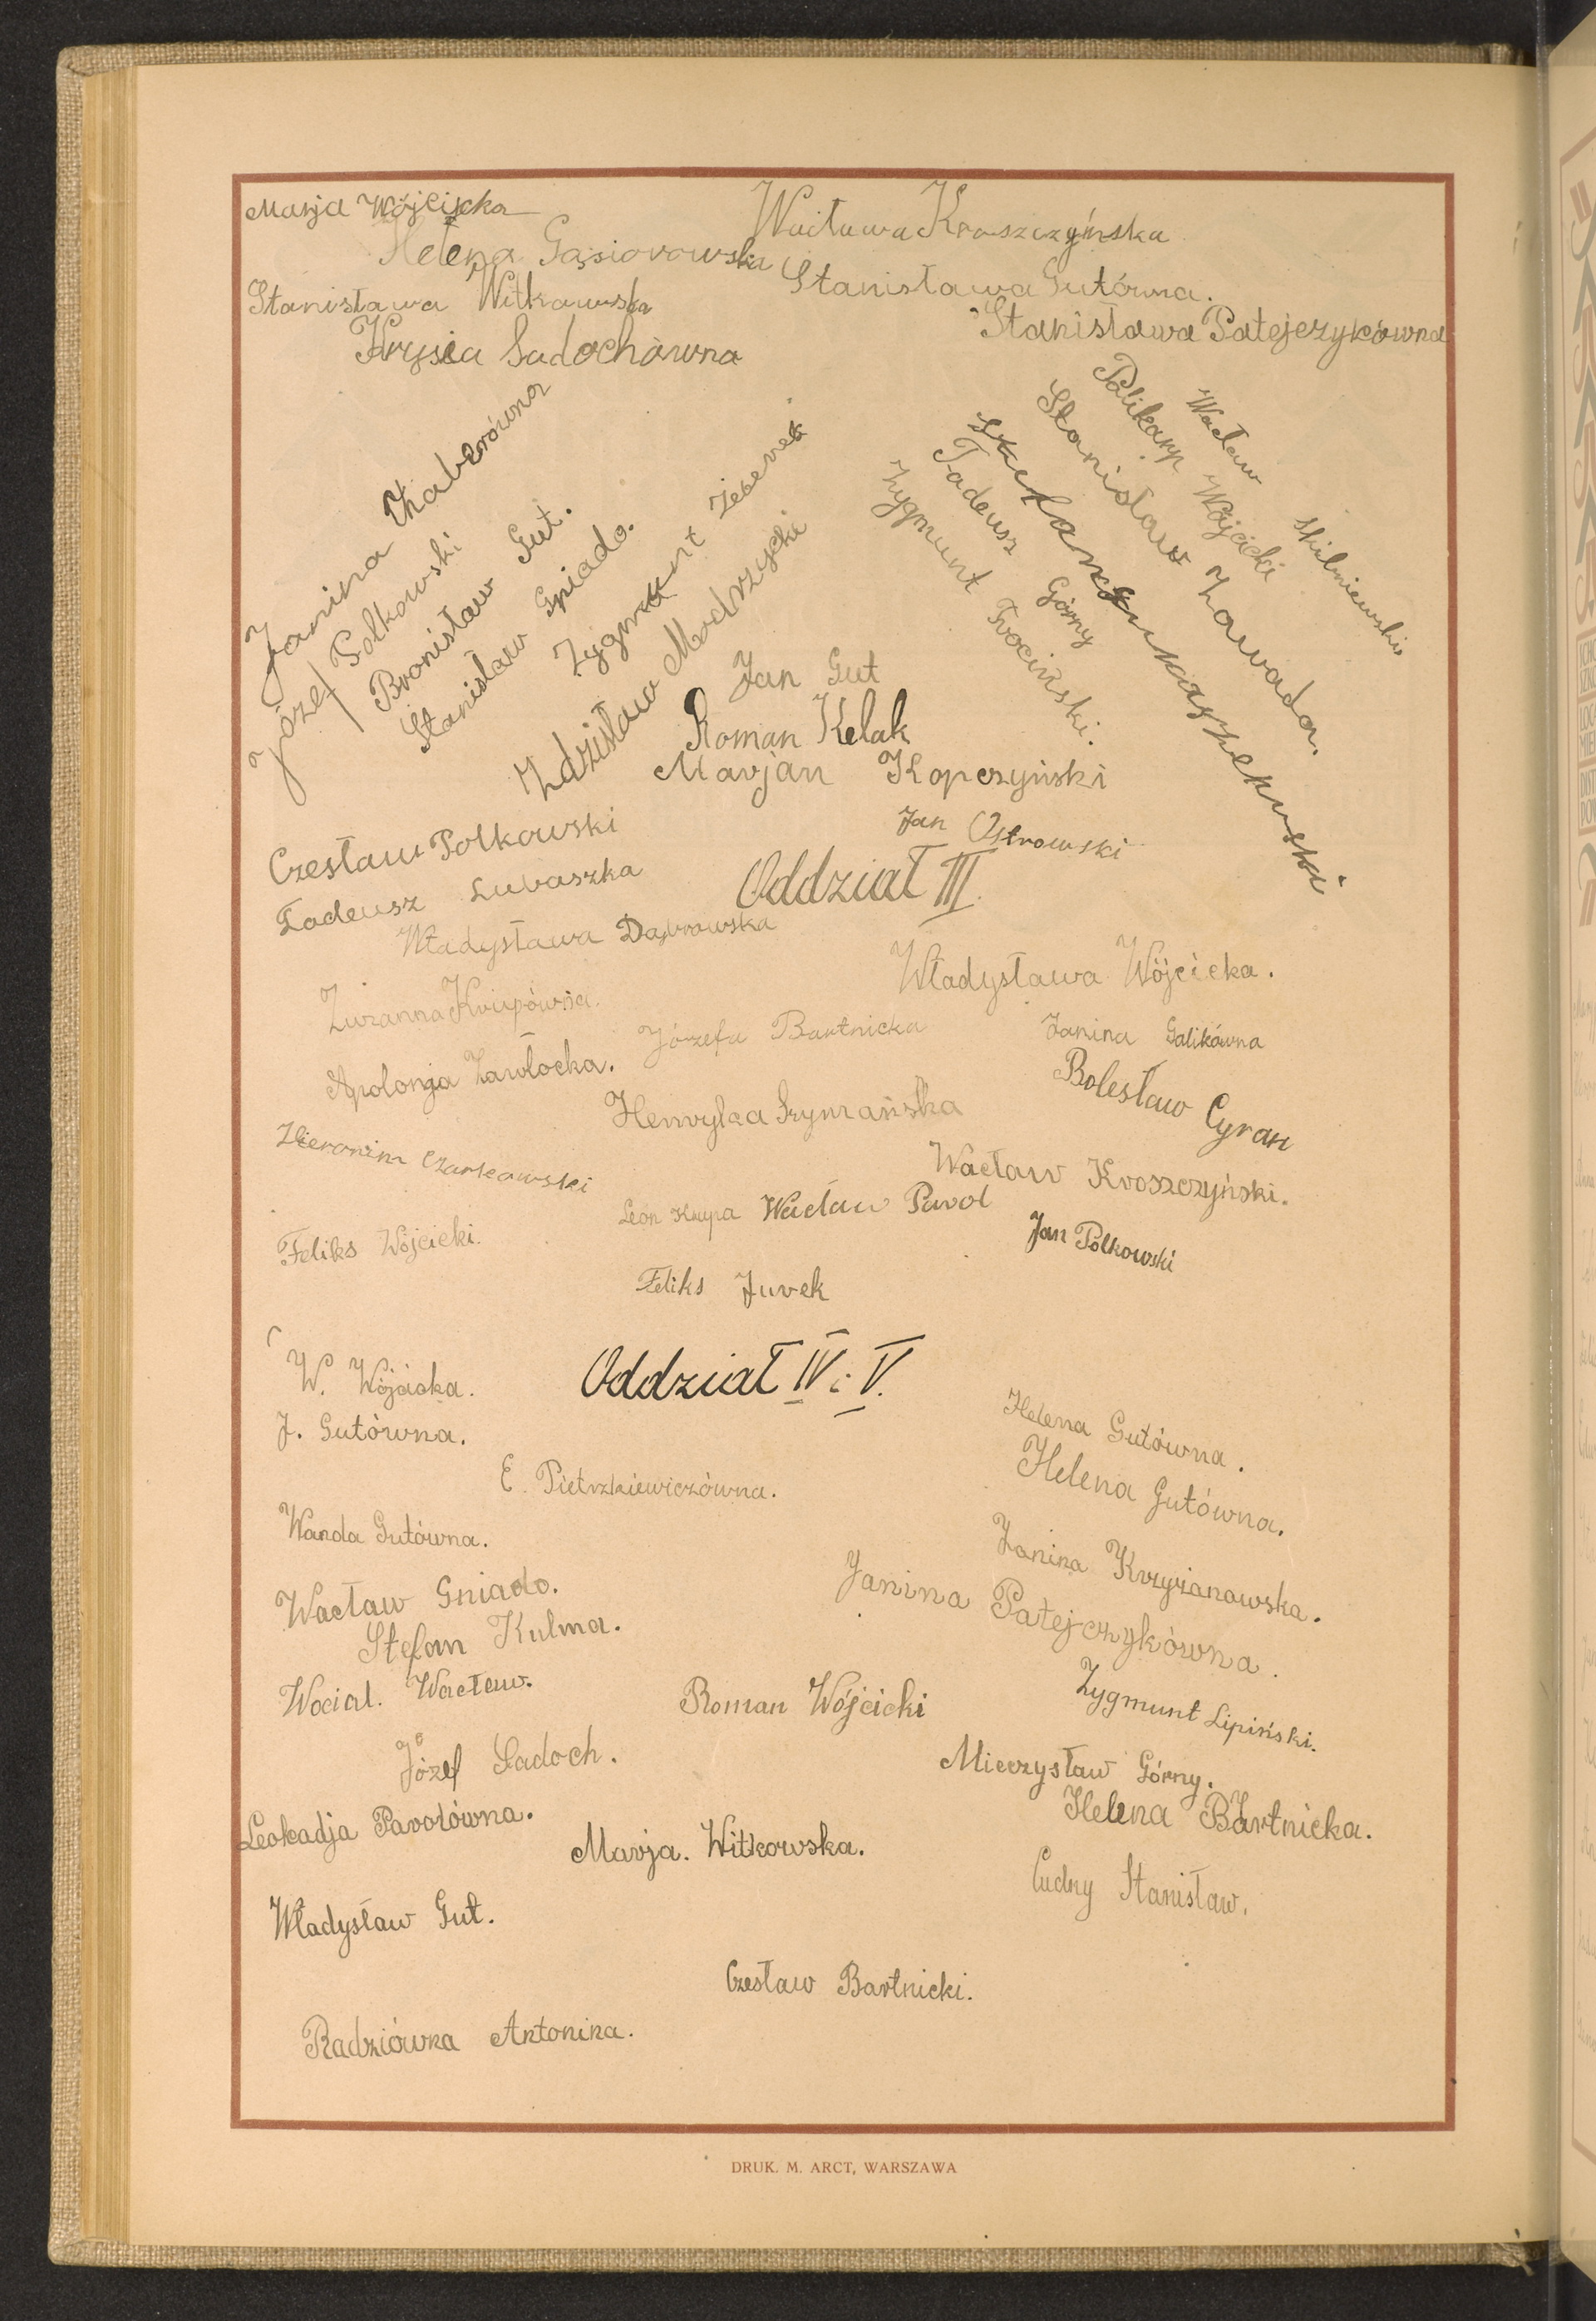 Marja Wójcicka
Wacława Kroszczyńska
Helena Gąsiorowska
Stanisława Gutówna.
Stanisława Witkowska
Stanisława Patejczykówna
Krysia Sadochówna
Janina Zhaberówna
Józef Polkowski
Bronisław Gut.
Stanisław Gniado.
Zygmunt
Zdzisław Modrzycki
Wacław Skibniewski
Polikarp Wójcicki
Stanisław Zawada.
Stefan Łukaszekwski
Tadeusz Górny
Zygmunt Trociński.
Jan Gut
Roman Kelak
Marjan Kopczyński
Czesław Polkowski
Jan Ostrowski
Tadeusz Lubaszka
Oddział III.
Władysława Dąbrowska
Władysława Wójcicka.
Zuzanna Krupówna.
Józefa Bartnicka
Janina Galikówna
Apolonja Zawłocka.
Bolesław Cyran
Henryka Szymańska
Hieronim Czarkowski
Wacław Kroszczyński.
Leon Krupa
Wacław Parol
Feliks Wójcicki.
Jan Polkowski
Feliks Jurek
Oddział IV i V.
W. Wójcicka.
J. Gutówna.
Helena Gutówna.
Helena Gutówna.
E. Pietrzkiewiczówna.
Wanda Gutówna.
Janina Krzyżanowska.
Janina Patejczykówna.
Wacław Gniado.
Stefan Kulma.
Wocial. Wacław.
Roman Wójcicki
Zygmunt Lipiński.
Józef Sadoch.
Mieczysław Górny.
Helena Bartnicka.
Leokadja Parolówna.
Marja. Witkowska.
Cudny Stanisław.
Władysław Gut.
Czesław Bartnicki.
Radziówna Antonina.
DRUK. M. ARCT, WARSZAWA